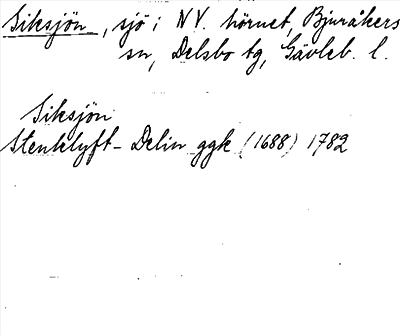 Siksjön, sjö i NV. hörnet, Bjuråkers
sn, Delsbo tg, Gävleb. l.
Siksjön
Stenklyft-Delin ggk (1688) 1782